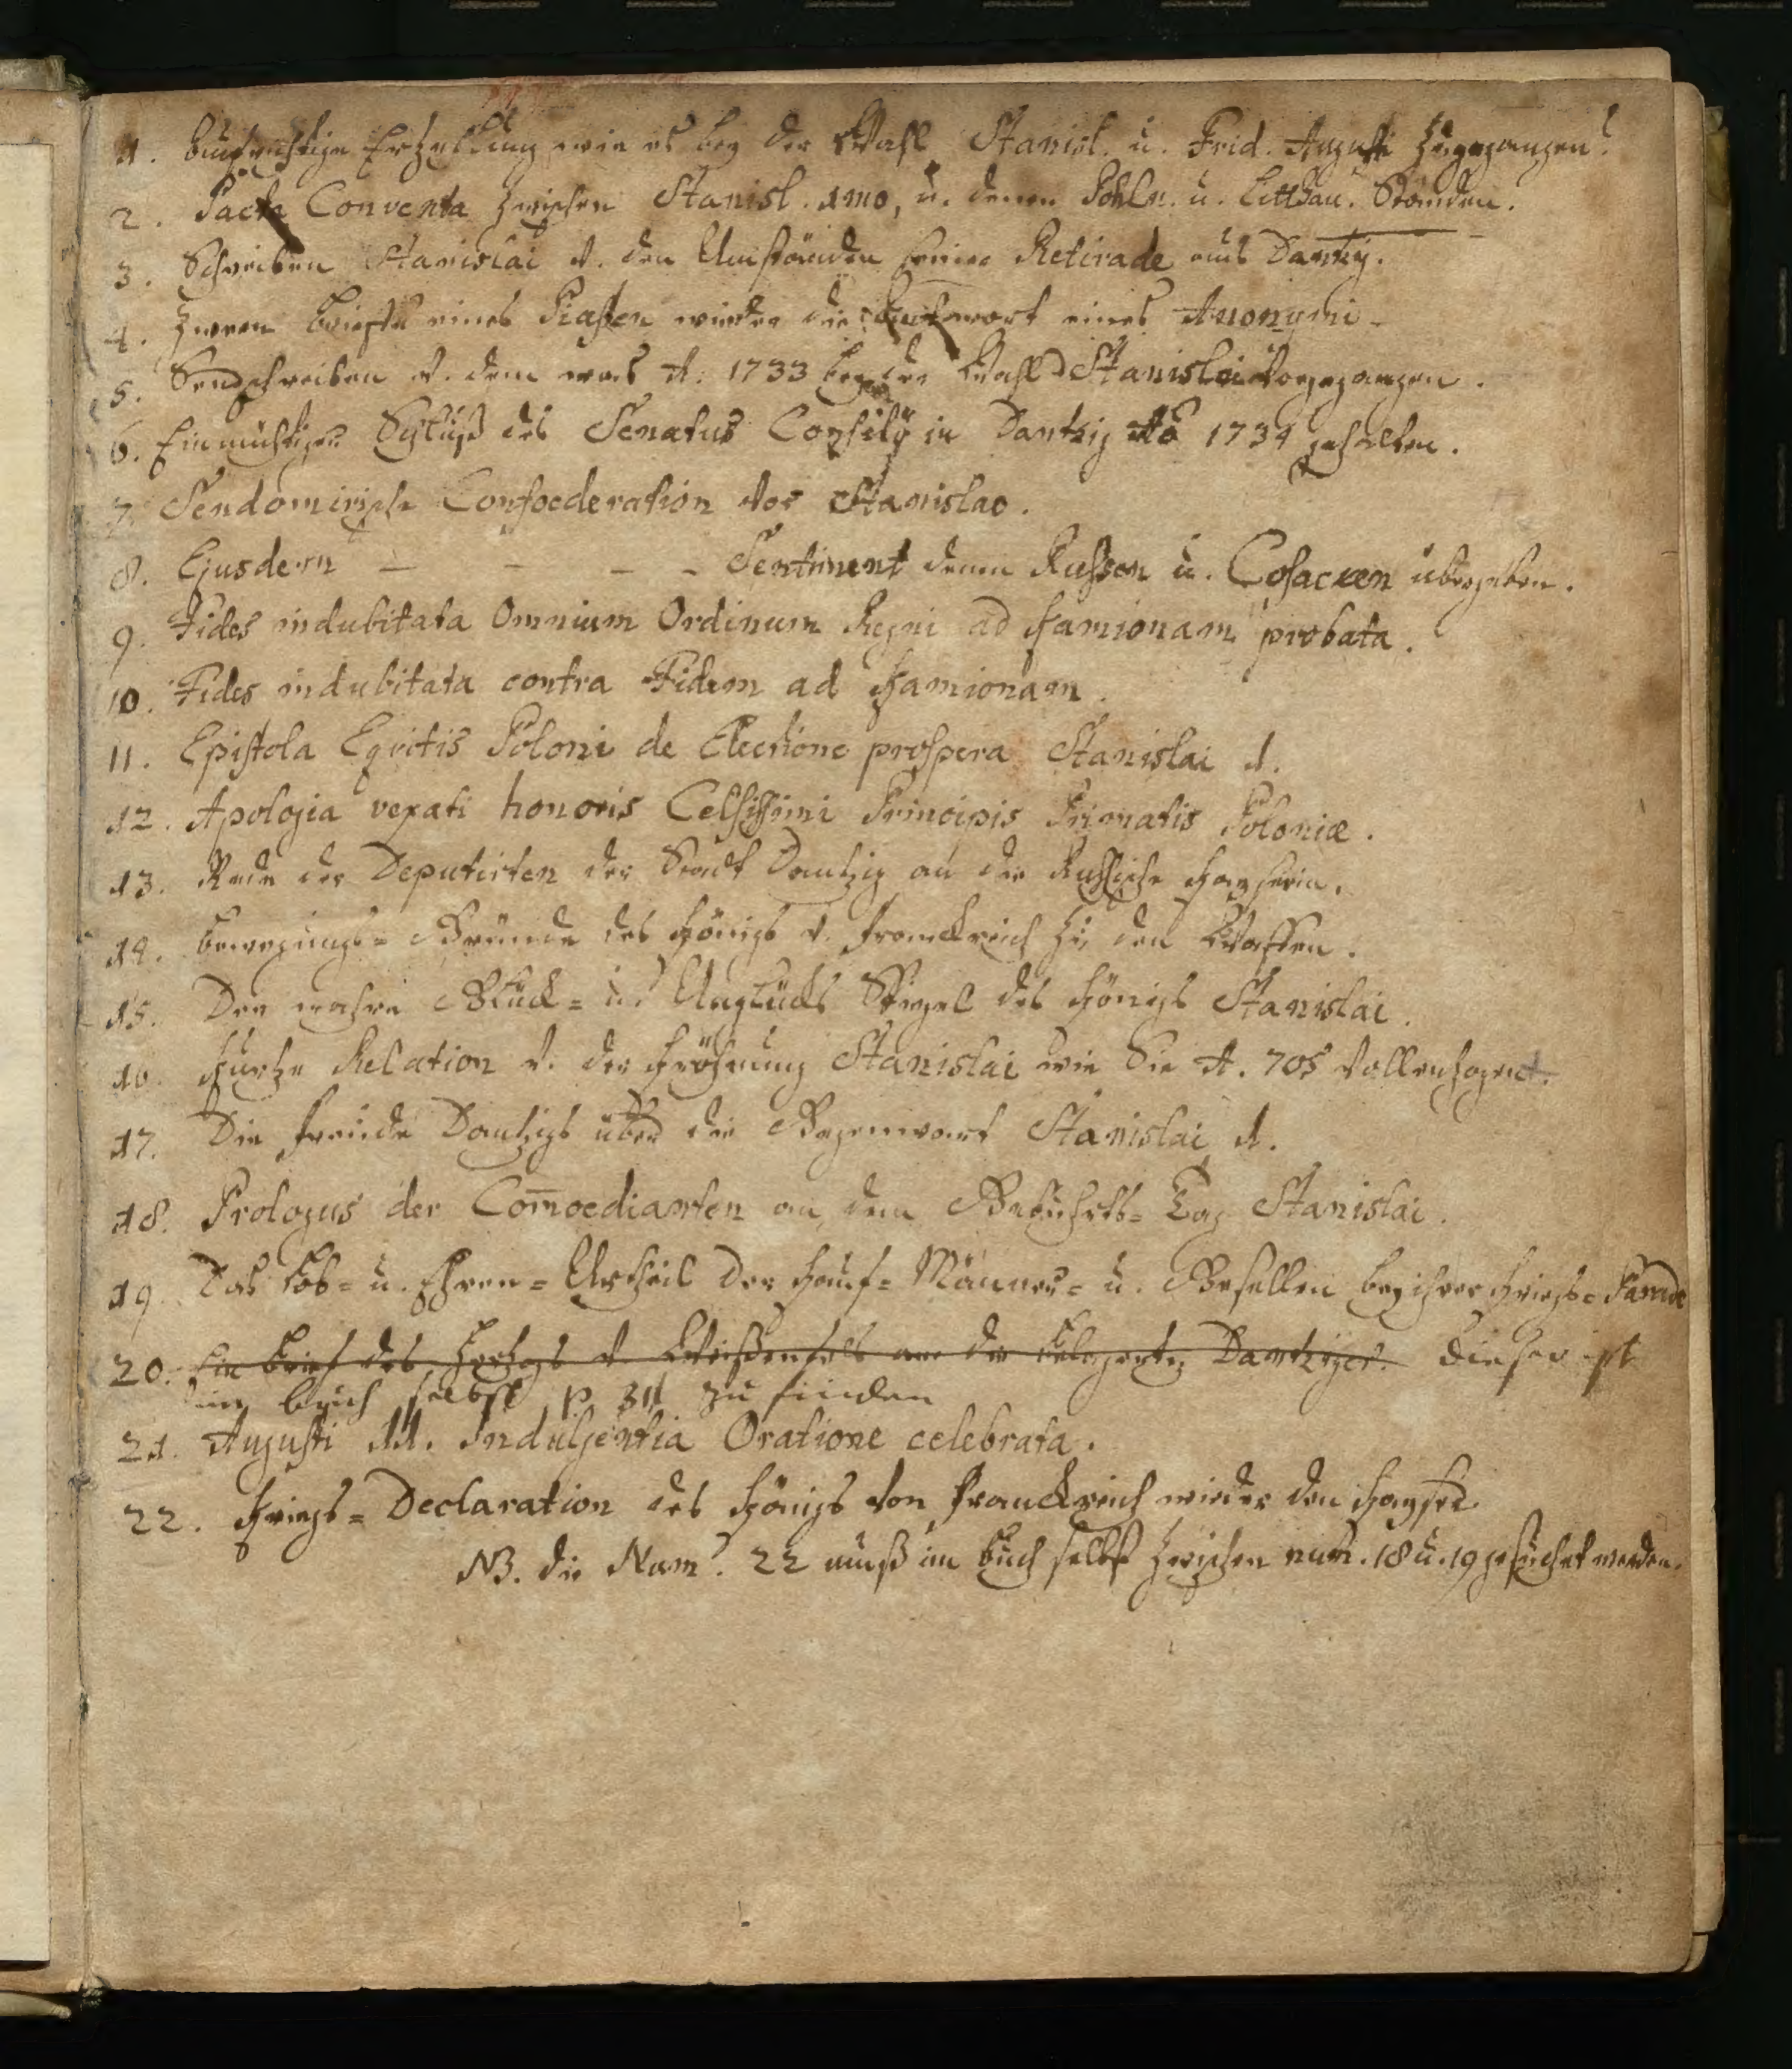 1. Aufrichtige Erzehlung wie es bey der Wahl Stanisl. u. Frid. Augusti zugegangen.
2. Pacta Conventa zwischen Stanisl. 1mo, u. denen Pohln. u. Litthau. Ständen.
3. Schreiben Stanislai v. den Umständen seiner Retirade aus Dantzig.
4. Zween Brieffe eines Piasten wieder die Antwort eines Anonymi
5. Sendschreiben v. dem was A. 1733 bey der Wahl Stanislai vorgegangen.
6. Einmüthiger Schluß des Senatus Consilÿ in Dantzig Aõ 1734 gehalten.
7. Sendomirische Confoederation vor Stanislao.
8. Ejusdem - - - - Sentiment denen Russen u. Cosacken übergeben.
9. Fides indubitata Omnium Ordinum Regni ad Kamionam probata.
10. Fides indubitata contra Fidem ad Kamionam.
11. Epistola Equitis Poloni de Electione prospera Stanislai 1.
12. Apologia vexati honoris Celsissimi Principis Primatis Poloniæ.
13. Rede der Deputirten der Stadt Dantzig an die Russische Kayserin.
14. Bewegungs= Gründe des Königs v. Franckreich zu den Waffen.
15. Der wahre Glück= u. Unglücks Spiegel des Königs Stanislai.
16. Kurtze Relation v. der Kröhnung Stanislai wie Sie A. 705 vollenzogen.
17. Die Freude Dantzigs über die Gegenwart Stanislai 1.
18. Prologus der Comoedianten an dem Gebuhrts= Tag Stanislai.
19. Das Lob= u. Ehren= Urtheil der Kauf= Männer= u. Gesellen bey ihrer Kriegs=
20. Ein Brief des Hertzogs v. Weißenfels an die Dantziger. dieser ist
im Buch selbst p. 311 zu finden
21. Augusti III. Indulgentia Oratione celebrata.
22. Kriegs= Declaration des Königs von Franckreich wieder den Kayser.
NB. die Num. 22 muß im Buch selbst zwischen num. 18 u. 19 gesucht werden.